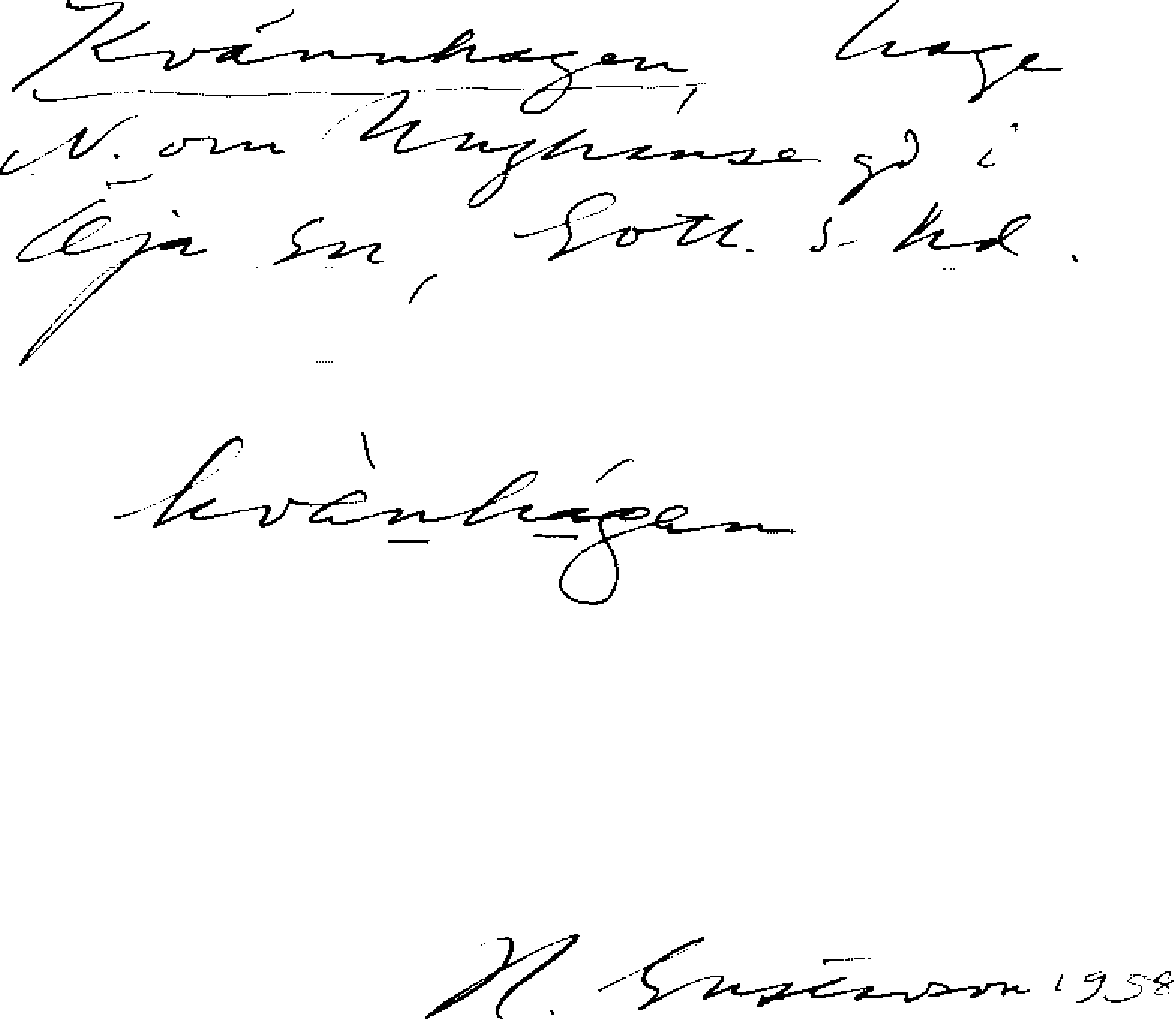 Kvännhagen, hage
N. om Unghanse gd i
Öja sn, Gotl. S. hd.
kvànhágen
H. Gustavson 1958